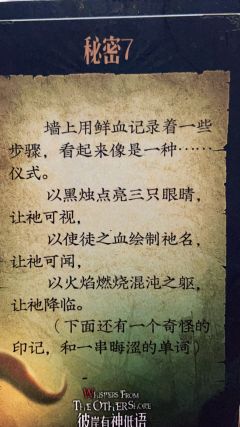 秘密7
墙上用鲜血记录着一些
步骤，看起来像是一种……
仪式。
以黑烛点亮三只眼睛，
让祂可视，
以使徒之血绘制祂名，
让祂可闻，
以火焰燃烧混沌之躯，
让祂降临。
（下面还有一个奇怪的
印记，和一串晦涩的单词）
WHISPERS FROM
THE OTHER SHORE
彼岸有神低语